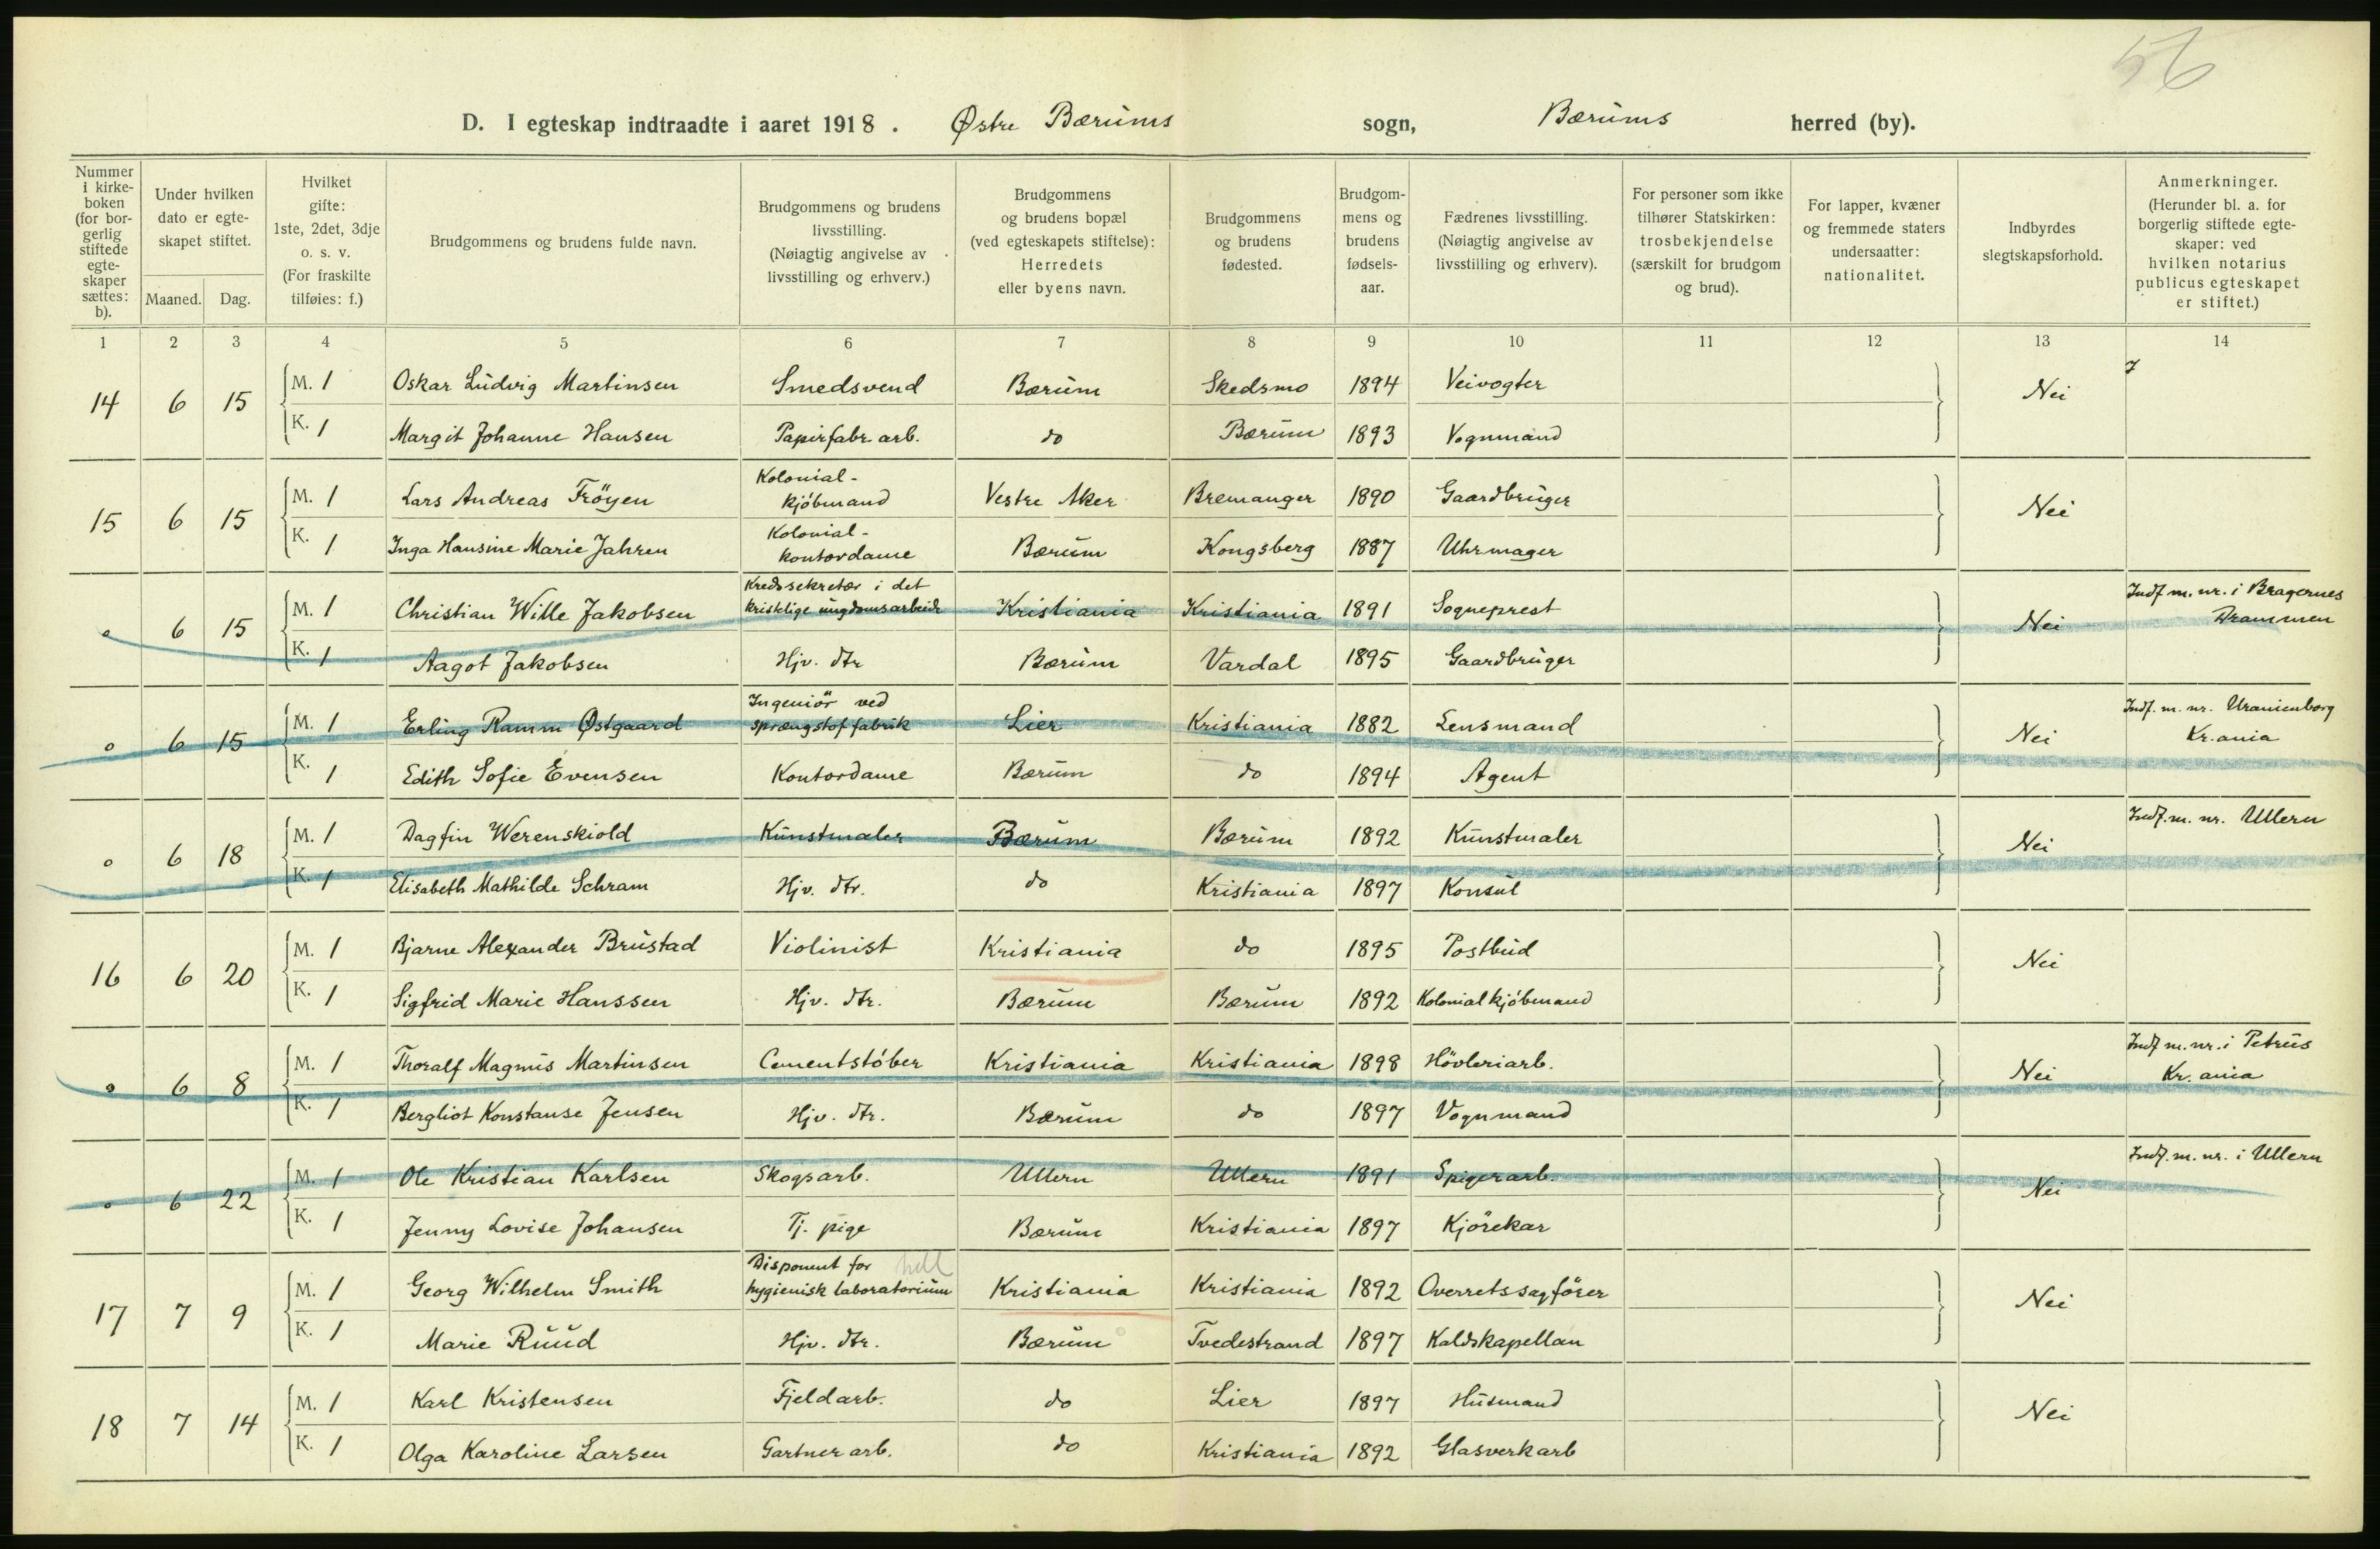 56
D. I egteskap indtraadte i aaret 1918. Østre Bærums sogn, Bærums herred (by).
Nummer i kirke-boken (for bor-gerlig stiftede egte-skaper sættes: b).
Under hvilken dato er egte-skapet stiftet.
Maaned. Dag.
Hvilket gifte: 1ste, 2det, 3dje o. s. v. (For fraskilte tilføies: f.)
Brudgommens og brudens fulde navn.
Brudgommens og brudens livsstilling. (Nøiagtig angivelse av livsstilling og erhverv.)
Brudgommens og brudens bopæl (ved egteskapets stiftelse): Herredets eller byens navn.
Brudgommens og brudens fødested.
Brudgom-mens og brudens fødsels-aar.
Fædrenes livsstilling. (Nøiagtig angivelse av livsstilling og erhverv).
For personer som ikke tilhører Statskirken: trosbekjendelse (særskilt for brudgom og brud).
For lapper, kvæner og fremmede staters undersaatter: nationalitet.
Indbyrdes slegtskapsforhold.
Anmerkninger. (Herunder bl. a. for borgerlig stiftede egte-skaper: ved hvilken notarius publicus egteskapet er stiftet.)
1 2 3 4 5 6 7 8 9 10 11 12 13 14
14 6 15 M. 1 Oskar Ludvig Martinsen Smedsvend Bærum Skedsmo 1894 Veivogter Nei
K. 1 Margit Johanne Hansen Papirfabr. arb. do Bærum 1893 Vognmand
15 6 15 M. 1 Lars Andreas Fröyen Kolonial-kjöbmand Vestre Aker Bremanger 1890 Gaardbruger Nei
K. 1 Inga Hansine Marie Jahren Kolonial-kontordame Bærum Kongsberg 1887 Uhrmager
o 6 15 M. 1 Christian Wille Jakobsen Kredssekretær i det kristelige ungdomsarbeide Kristiania Kristiania 1891 Sogneprest Nei Indf m. nr. i Bragernes Drammen
K. 1 Aagot Jakobsen Hjv. dtr Bærum Vardal 1895 Gaardbruger
o 6 15 M. 1 Erling Ramm Østgaard Ingeniör ved sprængstoffabrik Lier Kristiania 1882 Lensmand Nei Indf. m. nr. Uranienborg Kr.ania
K. 1 Edith Sofie Evensen Kontordame Bærum do 1894 Agent
o 6 18 M. 1 Dagfin Werenskiold Kunstmaler Bærum Bærum 1892 Kunstmaler Nei Indf. m. nr. Ullern
K. 1 Elisabeth Mathilde Schram Hjv. dtr. do Kristiania 1897 Konsul
16 6 20 M. 1 Bjarne Alexander Brustad Violinist Kristiania do 1895 Postbud Nei
K. 1 Sigfrid Marie Hanssen Hjv. dtr. Bærum Bærum 1892 Kolonialkjöbmand
o 6 8 M. 1 Thoralf Magnus Martinsen Cementstöber Kristiania Kristiania 1898 Hövleriarb. Nei Indf m. nr. i Petrus Kr. ania
K. 1 Bergliot Konstanse Jensen Hjv. dtr. Bærum do 1897 Vognmand
o 6 22 M. 1 Ole Kristian Karlsen Skogsarb. Ullern Ullern 1891 Spigerarb. Nei Indf. m. nr. i Ullern
K. 1 Jenny Lovise Johansen Tj. pige Bærum Kristiania 1897 Kjörekar
17 7 9 M. 1 Georg Wilhelm Smith Disponent for hygienisk laboratorium Kristiania Kristiania 1892 Overretssagförer Nei
K. 1 Marie Ruud Hjv. dtr. Bærum Tvedestrand 1897 Kaldskapellan
18 7 14 M. 1 Karl Kristensen Fjeldarb. do Lier 1897 Husmand Nei
K. 1 Olga Karoline Larsen Gartner arb. do Kristiania 1892 Glasverkarb